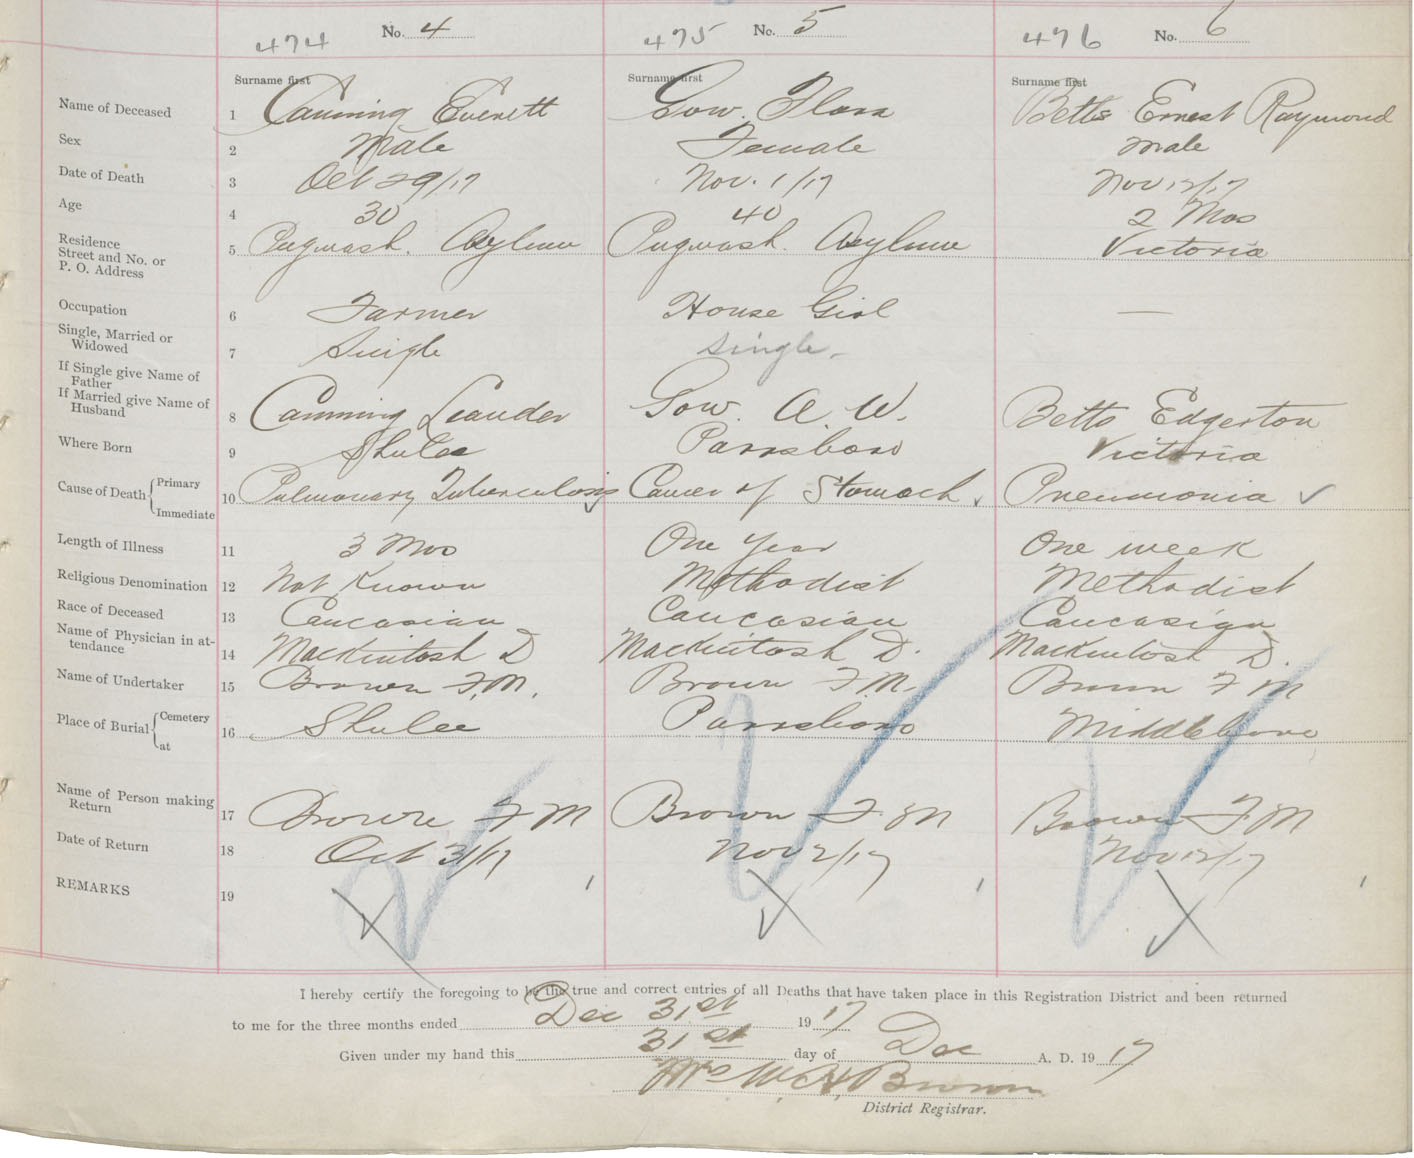 474 No. 4 475 No. 5 476 No. 6
Surname first Surname first Surname first
Name of Deceased 1 Canning Everett Gow. Flora Betts Ernest Raymond
Sex 2 Male Female Male
Date of Death 3 Oct 29/17 Nov. 1/17 Nov 12/17
Age 4 30 40 2 Mos
Residence
Street and No. or
P. O. Address 5 Pugwash. Asylum Pugwash. Asylum Victoria
Occupation 6 Farmer House Girl —
Single, Married or
Widowed 7 Single Single
If Single give Name of
Father
If Married give Name of
Husband 8 Canning Leander Gow. A. W. Betts Edgerton
Where Born 9 Shulee Parrsboro Victoria
Cause of Death { Primary
Immediate 10 Pulmonary Tuberculosis Cancer of Stomach Pneumonia
Length of Illness 11 3 Mos One Year One week
Religious Denomination 12 Not Known Methodist Methodist
Race of Deceased 13 Caucasian Caucasian Caucasian
Name of Physician in at-
tendance 14 Mackintosh D Mackintosh D. Mackintosh D.
Name of Undertaker 15 Brown F.M. Brown F.M. Brown F M
Place of Burial { Cemetery
at 16 Shulee Parrsboro Middleboro
Name of Person making
Return 17 Brown F M Brown F. M Brown F. M
Date of Return 18 Oct 31/17 Nov 2/17 Nov 12/17
REMARKS 19
I hereby certify the foregoing to be the true and correct entries of all Deaths that have taken place in this Registration District and been returned
to me for the three months ended Dec 31st 1917
Given under my hand this 31st day of Dec A. D. 1917
Mrs W. H. Brown
District Registrar.